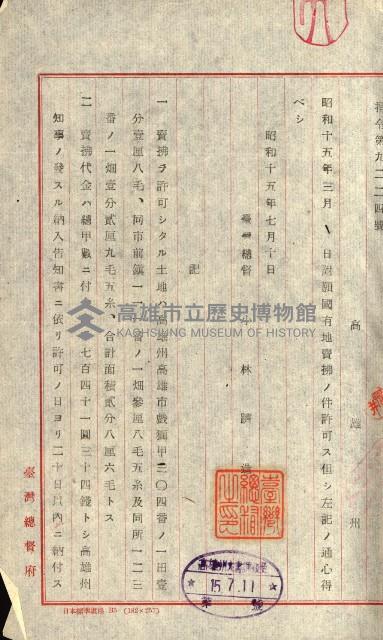 指令第九二二四號
高雄州
昭和十五年三月 日附願國有地賣拂ノ件許可ス但シ左記ノ通心得
ベシ
昭和十五年七月十日
臺灣總督 林
記
一 賣拂ヲ許可シタル土地ハ高雄州高雄市戲獅甲三〇四番ノ一田壹
分壹厘八毛、同市前鎮一 番ノ一畑參厘八毛五糸及同所一二三
番ノ一畑壹分貳厘九毛五糸、合計面積貳分八厘六毛トス
二 賣拂代金ハ總甲數ニ付 七百四十一圓三十四錢トシ高雄州
知事ノ發スル納入告知書ニ依リ許可ノ日ヨリ二十日以內ニ納付ス
臺灣總督府
臺灣總督之印
15.7.11
日本標準規格 B5 (182×257)
高雄市立歷史博物館
KAOHSIUNG MUSEUM OF HISTORY